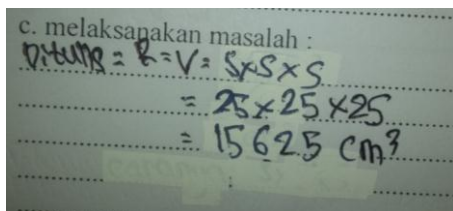 c. melaksanakan masalah :
Ditung = R = V = S x S x S
= 25 x 25 x 25
= 15625 cm³